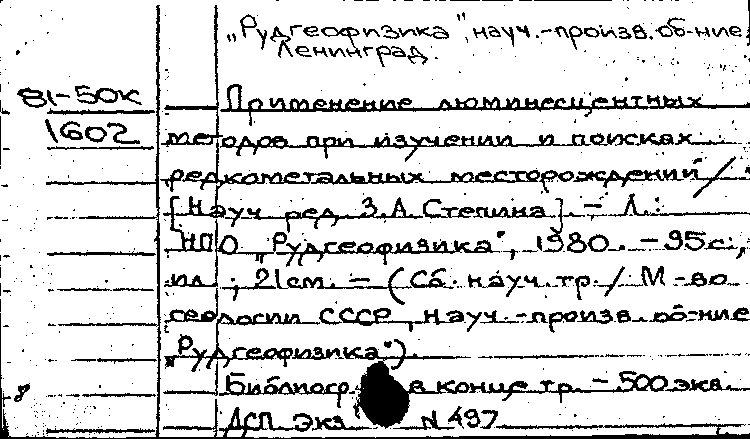 „Рудгеофизика", науч.-произв. об-ние,
Ленинград.
81-50к
1602
Применение люминесцентных
методов при изучении и поисках
редкометальных месторождений /
[Науч ред. З.А. Степина]. – Л.:
НПО „Рудгеофизика", 1980. – 95с.,
ил.; 21см. – (Сб. науч. тр. / М-во
геологии СССР, Науч.-произв. об-ние
„Рудгеофизика").
Библиогр. в конце тр. – 500 экз.
ДСП Экз. N 497